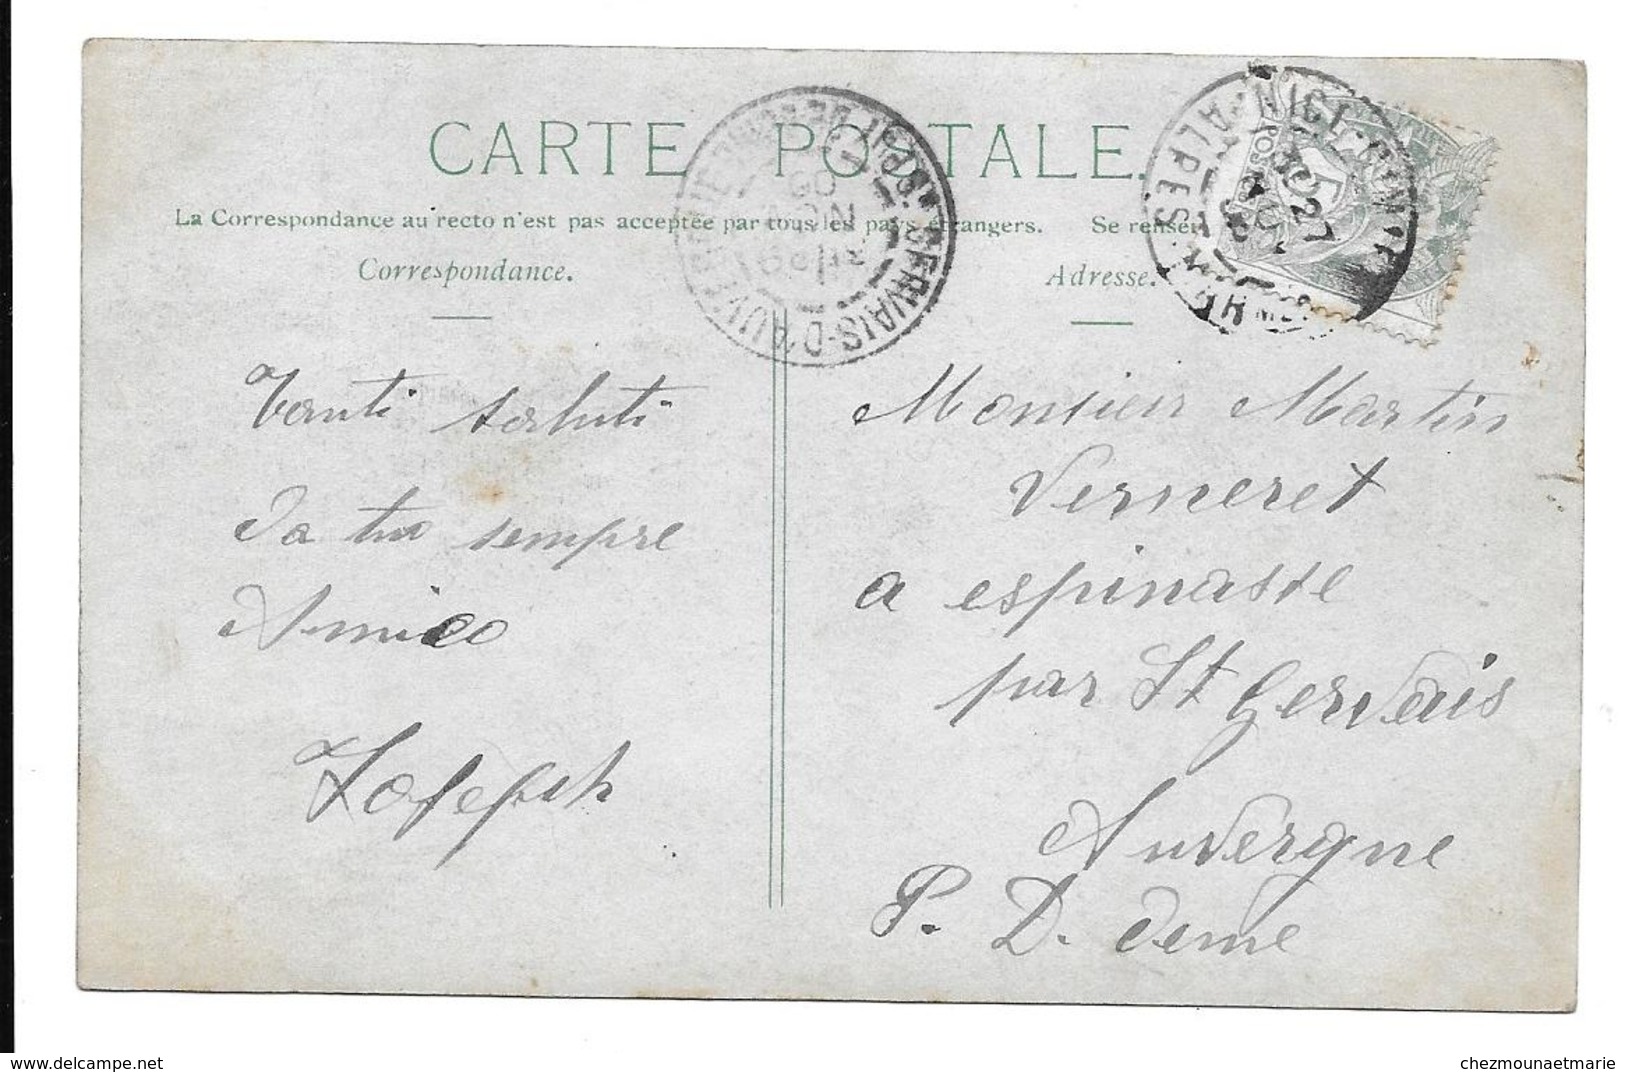 CARTE POSTALE.
La Correspondance au recto n'est pas acceptée par tous les pays étrangers. Se renseigner
Correspondance. Adresse.
Tanti saluti
Da tuo sempre
Amico
Josepsh
Monsieur Martin
Verneret
a espinasse
par St Gervais
Auvergne
P. D. deme
ST GERVAIS-D'AUVERGNE
5
chezmounaetmarie
chezmounaetmarie